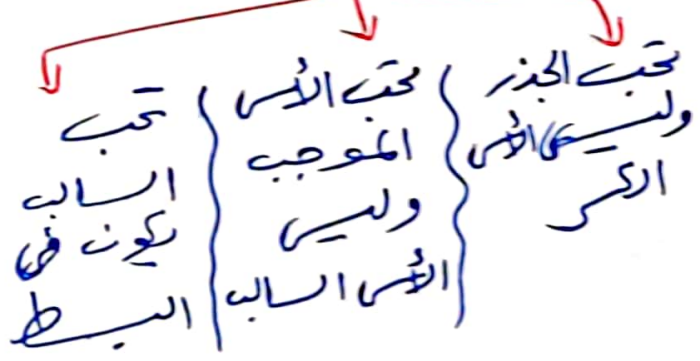 تحب الجذر
وليس الأس
الكسر
تحب الأس
الموجب
وليس
الأس السالب
تحب
السالب
يكون في
البسط